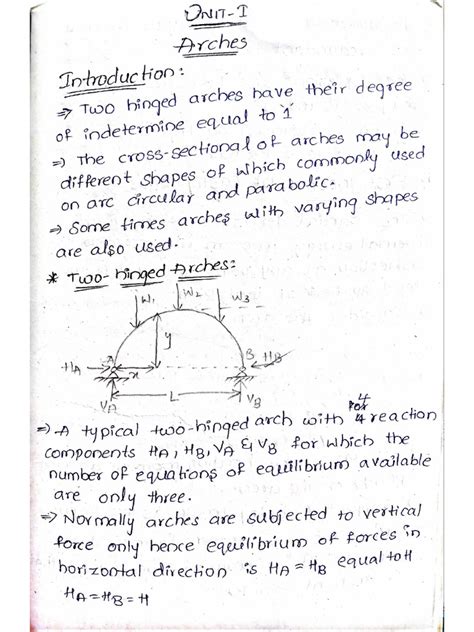 UNIT-I
Arches
Introduction:
⇒ Two hinged arches have their degree
of indetermine equal to '1'
⇒ The cross-sectional of arches may be
different shapes of which commonly used
on arc circular and parabolic.
⇒ Some times arches with varying shapes
are also used.
* Two-hinged Arches:
W1 W2 W3
y
A B
HA HB
x
L
VA VB
4
⇒ A typical two-hinged arch with 4 reaction
components HA, HB, VA & VB for which the
number of equations of equilibrium available
are only three.
⇒ Normally arches are subjected to vertical
force only hence equilibrium of forces in
horizontal direction is HA = HB equal to H
HA = HB = H